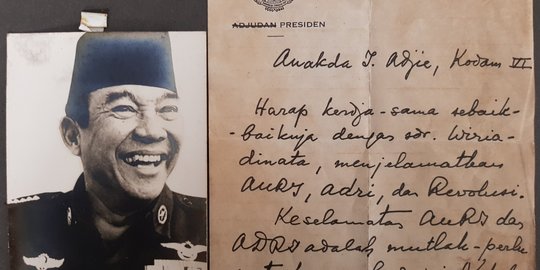 ADJUDAN PRESIDEN
Anakda I. Adjie, Kodam VI
Harap kerdja-sama sebaik-
-baiknja dengan sdr. Wiria-
dinata, menjelamatkan
AURI, ADRI, dan Revolusi.
Keselamatan AURI dan
ADRI adalah mutlak-perlu